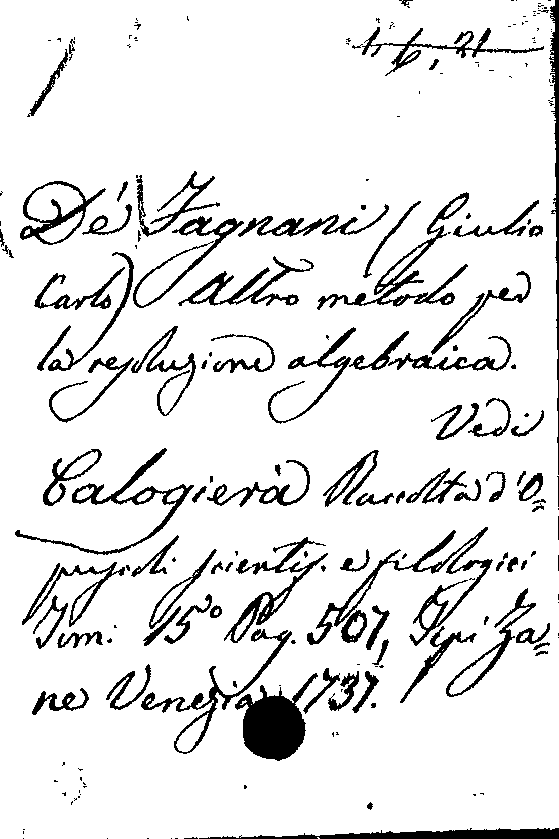 1, 6, 21
De' Fagnani (Giulio
Carlo) Altro metodo per
la resoluzione algebraica.
Vedi
Calogierà Raccolta d'O=
puscoli scientif. e filologici
Tom: 15° Pag. 507, Tipi Za=
ne Venezia 1737.